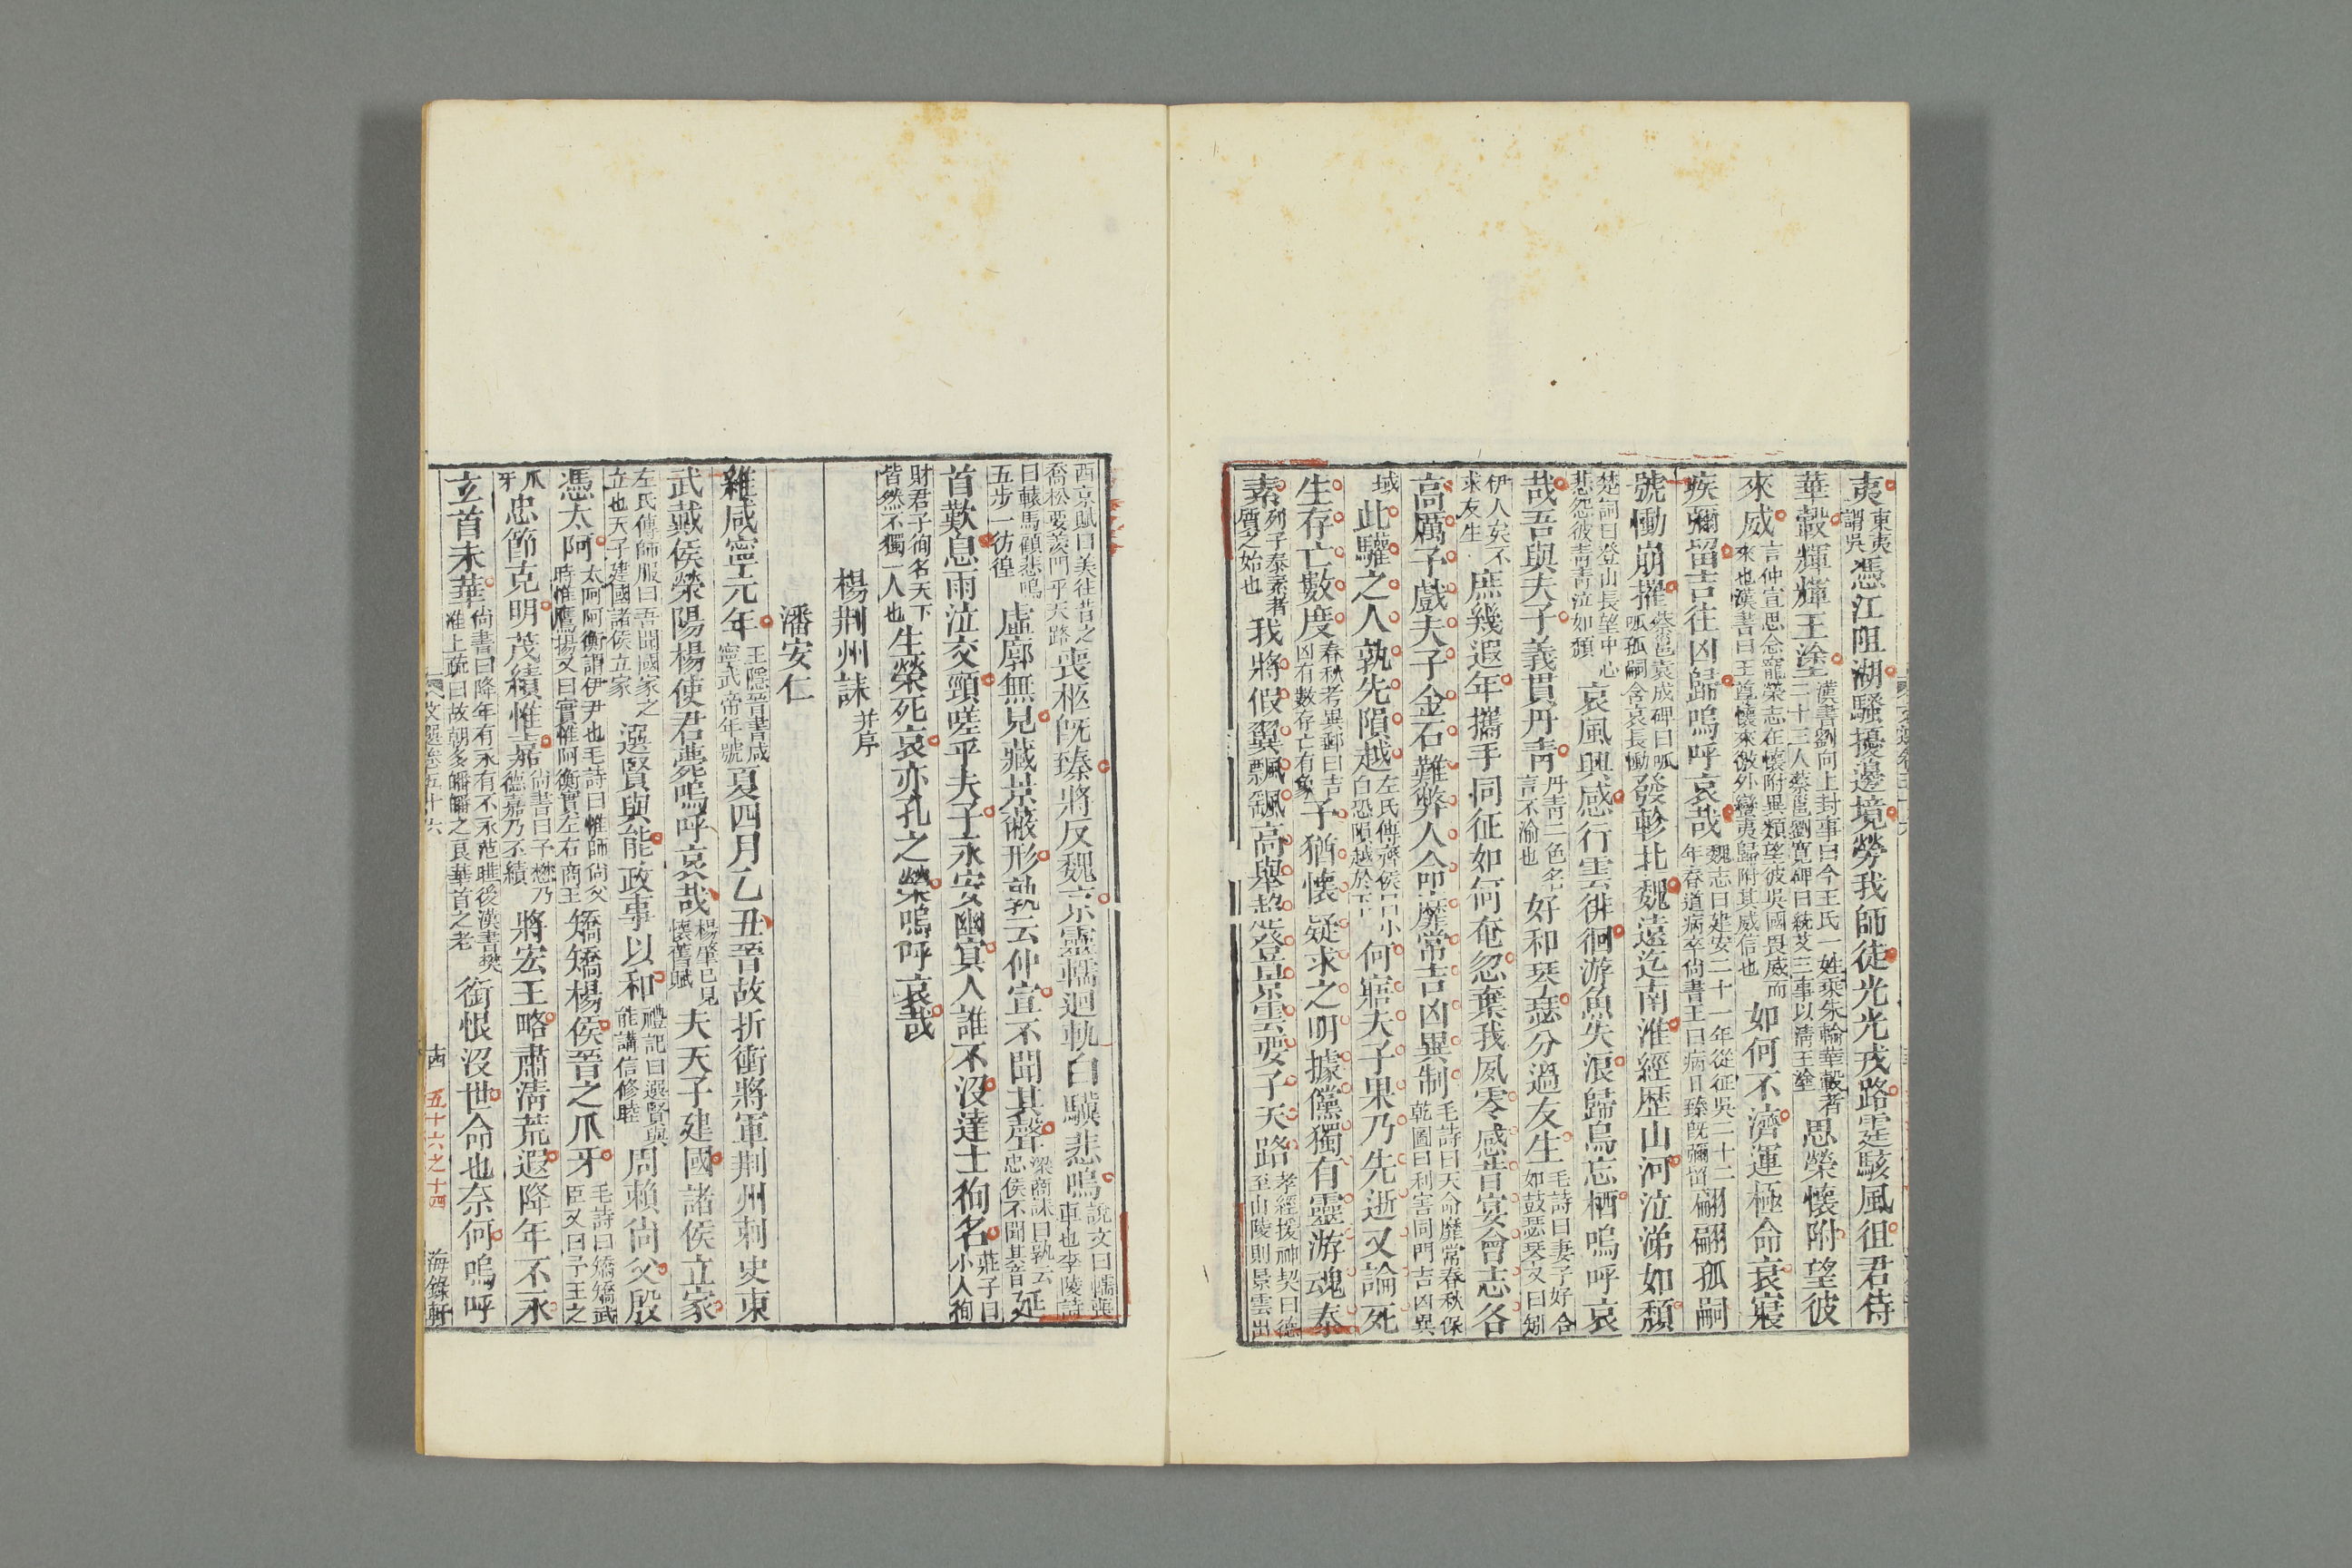 夷東夷謂吳憑江阻湖騷擾邊境勞我師徒光光戎路霆駭風徂君侍
華轂輝輝王塗漢書劉向上封事曰今王氏一姓乘朱輪華轂者二十三人蔡邕劉寬碑曰統艾三事以清王塗思榮懷附望彼
來威言仲宣思念寵榮志在懷附異類望彼吳國畏威而來也漢書曰王首懷來儌外蠻夷歸附其威信也如何不濟運極命衰寢
疾彌留吉往凶歸嗚呼哀哉魏志曰建安二十一年從征吳二十二年春道病卒尚書王曰病日臻既彌留翩翩孤嗣
號慟崩摧蔡邕袁成碑曰呱呱孤嗣含哀長慟發軫北魏遠迄南淮經歷山河泣涕如頹
楚詞曰登山長望中心悲怨彼青青泣如頹哀風興感行雲徘徊游魚失浪歸鳥忘栖嗚呼哀
哉吾與夫子義貫丹青丹青二色名言不渝也好和琴瑟分過友生毛詩曰妻子好合如鼓瑟琴又曰矧
伊人矣不求友生庶幾遐年攜手同征如何奄忽棄我夙零感昔宴會志各
高厲予戲夫子金石難弊人命靡常吉凶異制毛詩曰天命靡常春秋保乾圖曰利害同門吉凶異
域此驩之人孰先隕越左氏傳齊侯曰小白恐隕越於下何寤夫子果乃先逝又論死
生存亡數度春秋考異郵曰吉凶有數存亡有象子猶懷疑求之明據儻獨有靈游魂泰
素列子泰素者質之始也我將假翼飄飖高舉超登景雲要子天路孝經援神契曰德至山陵則景雲出
西京賦曰美往昔之喬松要羨門乎天路喪柩既臻將反魏京靈轜迴軌白驥悲鳴說文曰轜喪車也李陵詩
曰轅馬顧悲鳴五步一彷徨虛廓無見藏景蔽形孰云仲宣不聞其聲梁商誄曰孰云忠侯不聞其音延
首歎息雨泣交頸嗟乎夫子永安幽冥人誰不沒達士徇名莊子曰小人徇
財君子徇名天下皆然不獨一人也生榮死哀亦孔之榮嗚呼哀哉
楊荊州誄并序
潘安仁
維咸寧元年王隱晉書咸寧武帝年號夏四月乙丑晉故折衝將軍荊州刺史東
武戴侯滎陽楊使君薨嗚呼哀哉楊肇已見懷舊賦夫天子建國諸侯立家
左氏傳師服曰吾聞國家之立也天子建國諸侯立家選賢與能政事以和禮記曰選賢與能講信修睦周賴尚父殷
憑太阿太阿阿衡謂伊尹也毛詩曰惟師尚父時惟鷹揚又曰實惟阿衡實左右商王矯矯楊侯晉之爪牙毛詩曰矯矯武臣又曰予王之
爪牙忠節克明茂績惟嘉尚書曰予懋乃德嘉乃丕績將宏王略肅清荒遐降年不永
玄首未華尚書曰降年有永有不永范曄後漢書樊准上疏曰故朝多皤皤之良華首之老銜恨沒世命也奈何嗚呼
文選卷五十六
五十六之十四
海錄軒